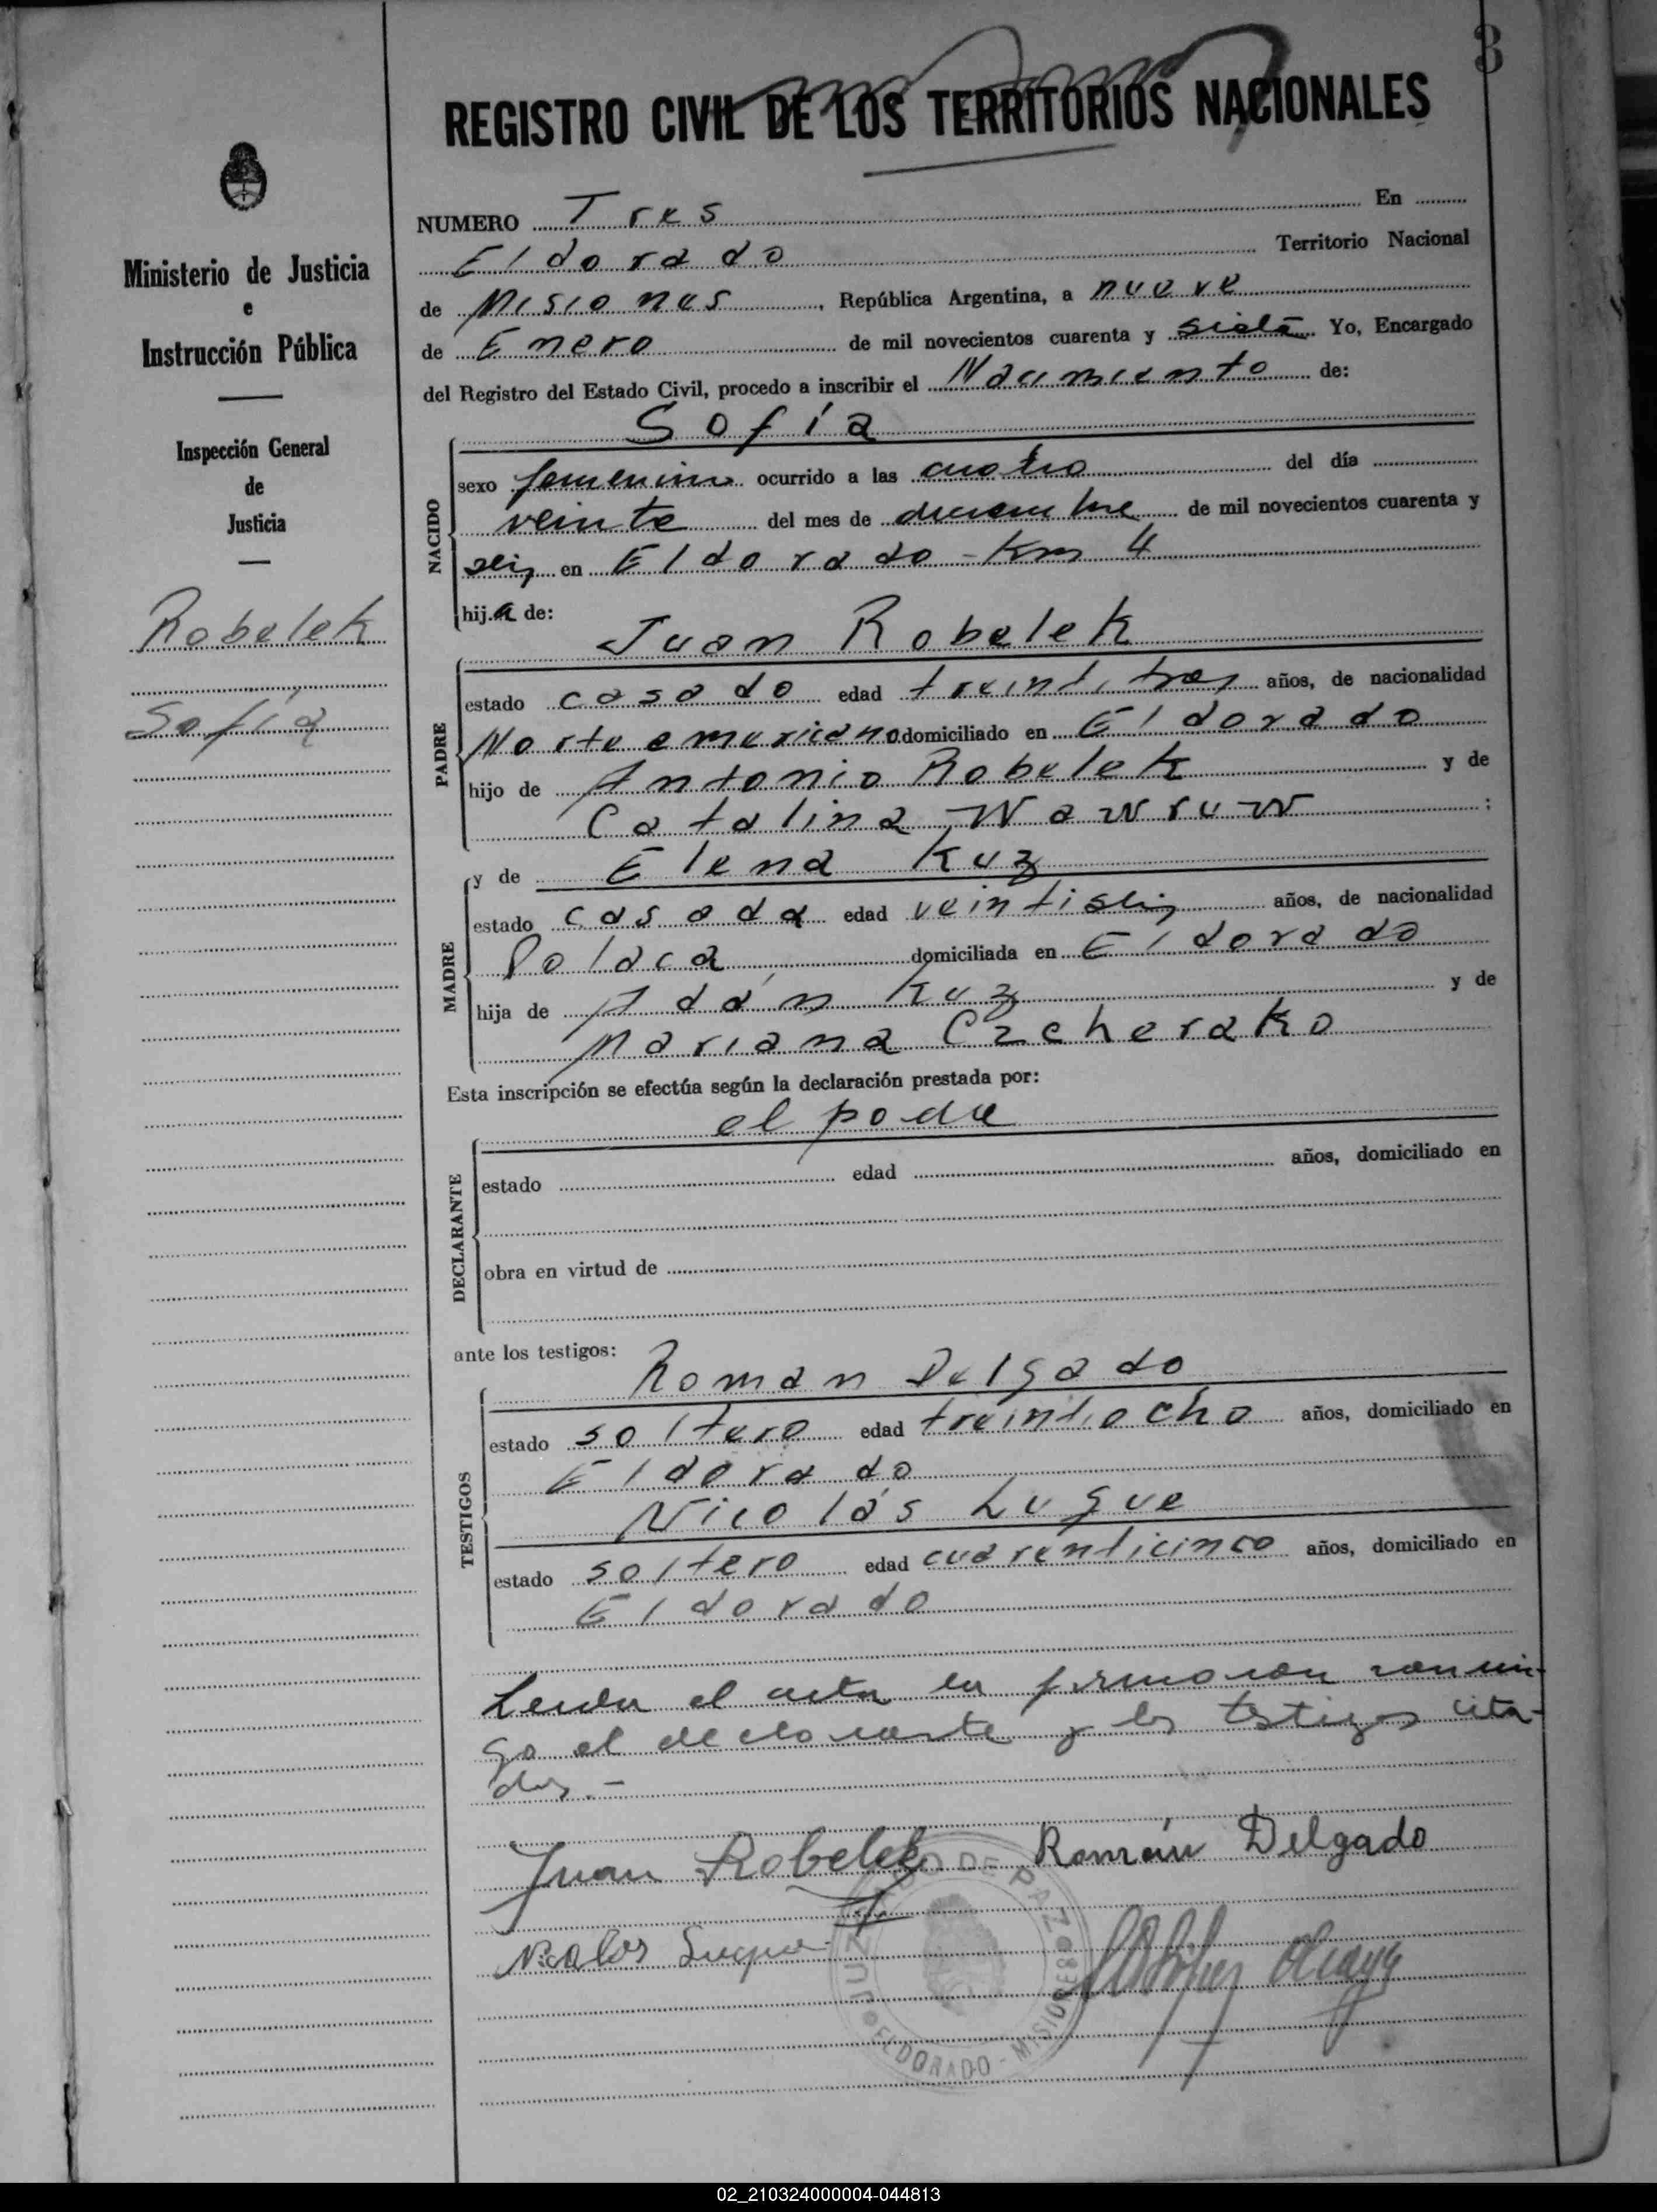 3
REGISTRO CIVIL DE LOS TERRITORIOS NACIONALES
Ministerio de Justicia
e
Instrucción Pública
Inspección General
de
Justicia
Robelek
Sofía
NUMERO Tres En
Eldorado Territorio Nacional
de Misiones, República Argentina, a nueve
de Enero de mil novecientos cuarenta y siete Yo, Encargado
del Registro del Estado Civil, procedo a inscribir el Nacimiento de:
Sofía
NACIDO
sexo femenino ocurrido a las cuatro del día
veinte del mes de diciembre de mil novecientos cuarenta y
seis en Eldorado - Km 4
hija de:
Juan Robelek
PADRE
estado casado edad treintitres años, de nacionalidad
Norteamericano domiciliado en Eldorado
hijo de Antonio Robelek y de
Catalina Wawruw ;
y de Elena Kuz
MADRE
estado casada edad veintiseis años, de nacionalidad
Polaca domiciliada en Eldorado
hija de Adán Kuz y de
Mariana Czcherako
Esta inscripción se efectúa según la declaración prestada por:
el padre
DECLARANTE
estado edad años, domiciliado en
obra en virtud de
ante los testigos:
Roman Delgado
TESTIGOS
estado soltero edad treintiocho años, domiciliado en
Eldorado
Nicolás Luque
estado soltero edad cuarenticinco años, domiciliado en
Eldorado
Leida el acta la firmaron conmi-
go el declarante y los testigos cita-
dos.-
Juan Robelek Román Delgado
Nicolas Luque
JUZGADO DE PAZ
ELDORADO - MISIONES
02_210324000004-044813